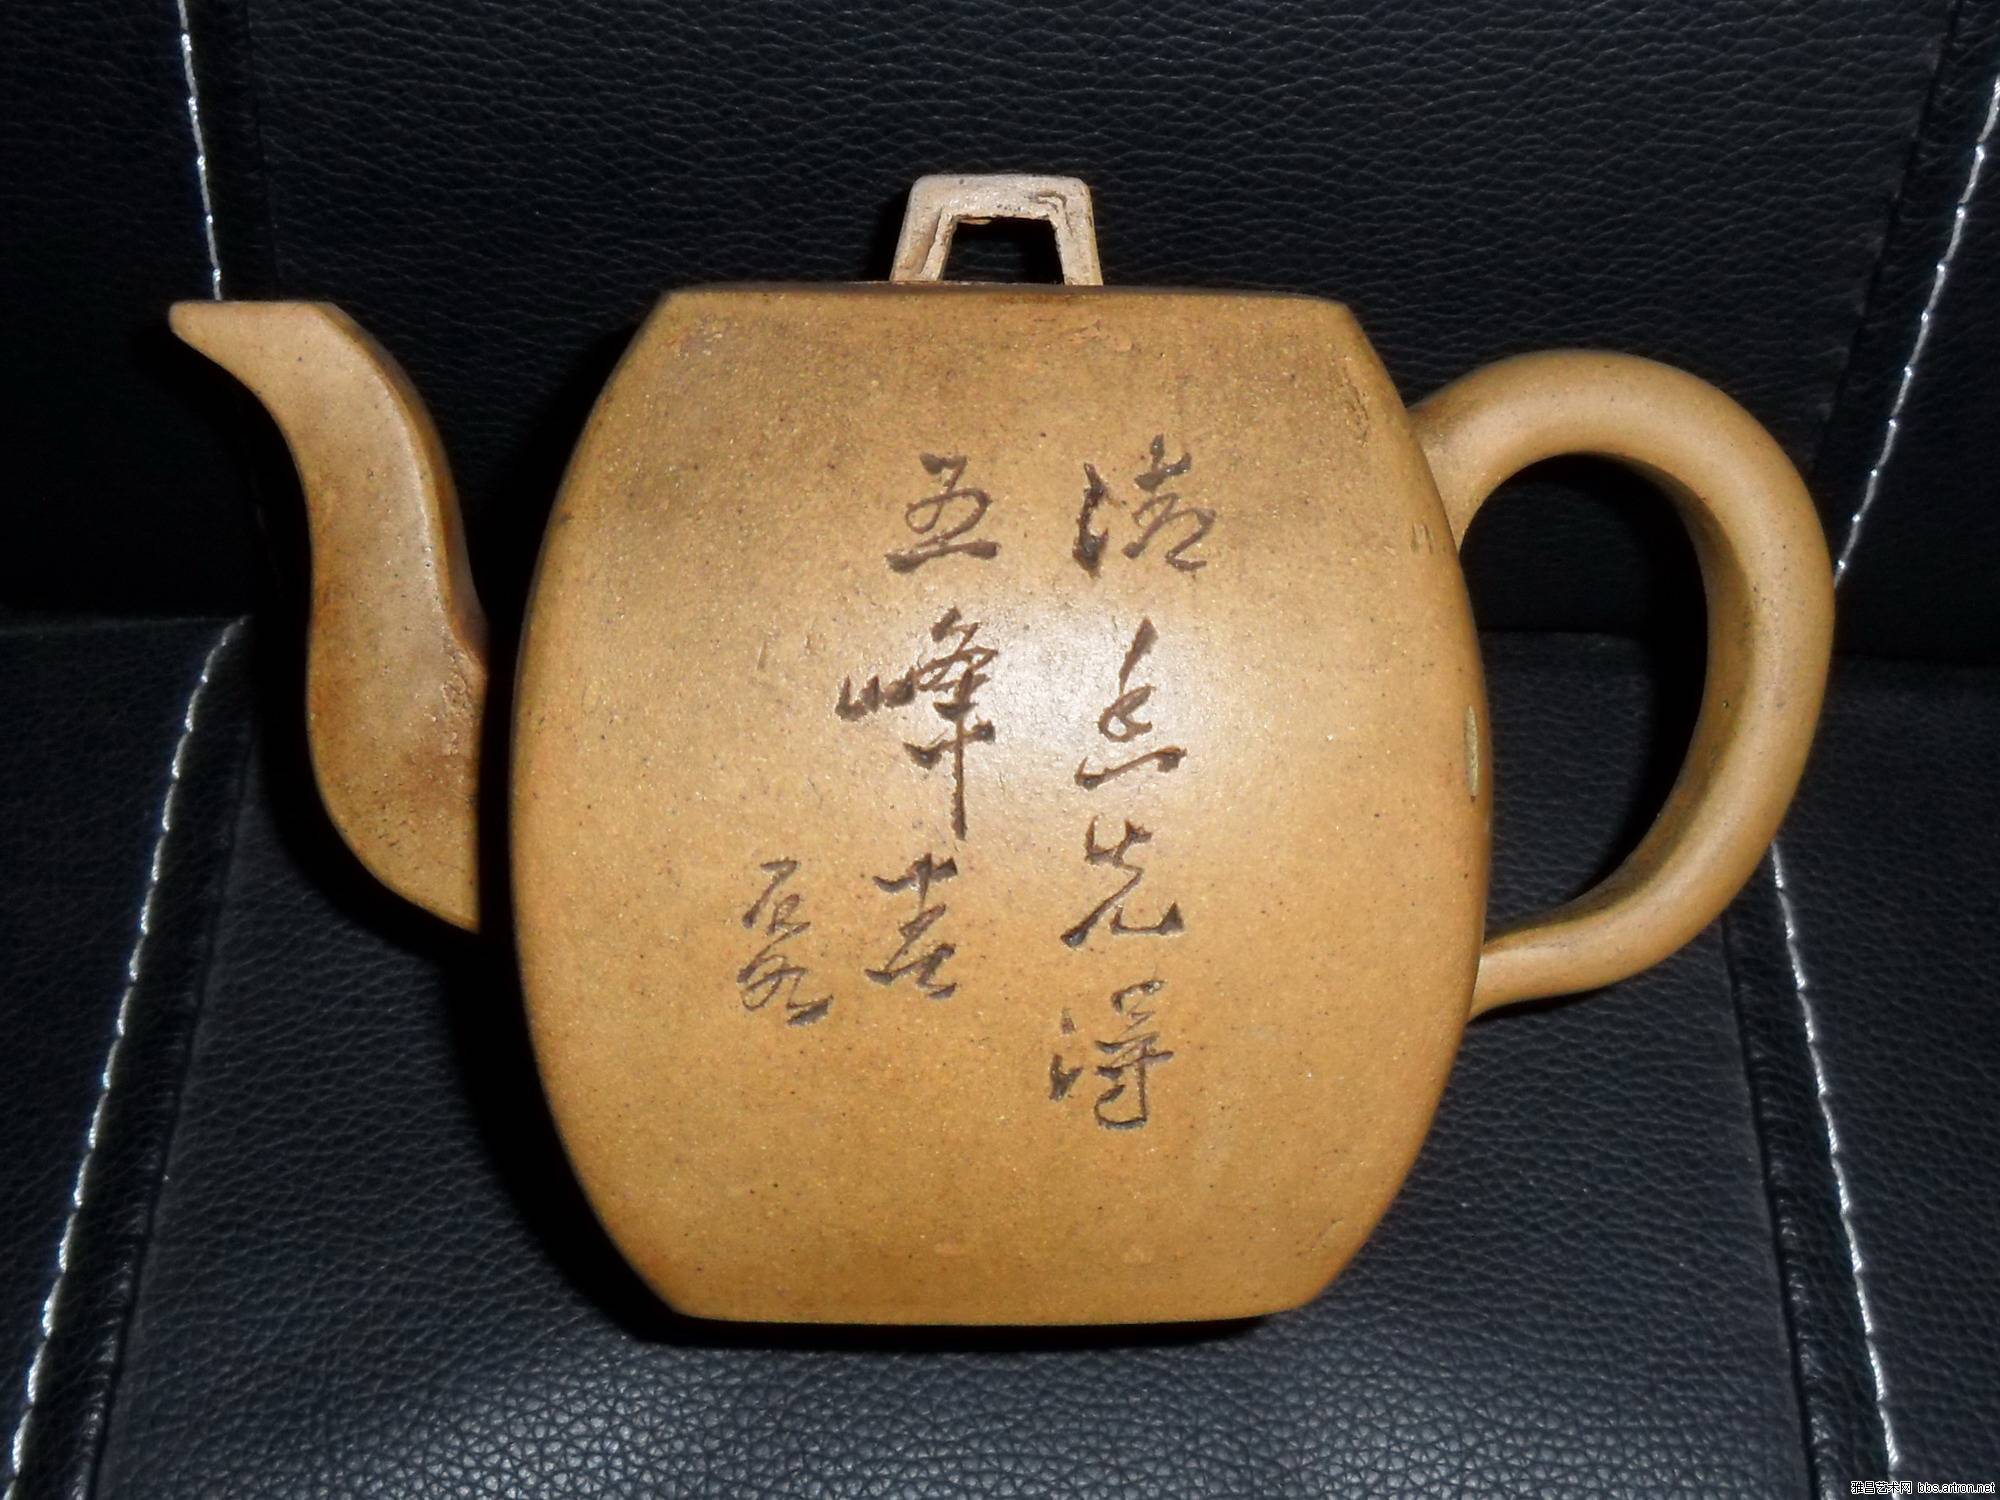 清香先得
五峰春
雅昌艺术网 bbs.artron.net